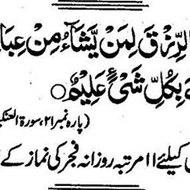 الرِّزْقَ لِمَنْ يَّشَآءُ مِنْ عِبَا
بِكُلِّ شَيْءٍ عَلِيْمٌ○
(پارہ نمبر ۲۱، سورۃ العنک
کیلئے ۱۱ مرتبہ روزانہ فجر کی نماز کے